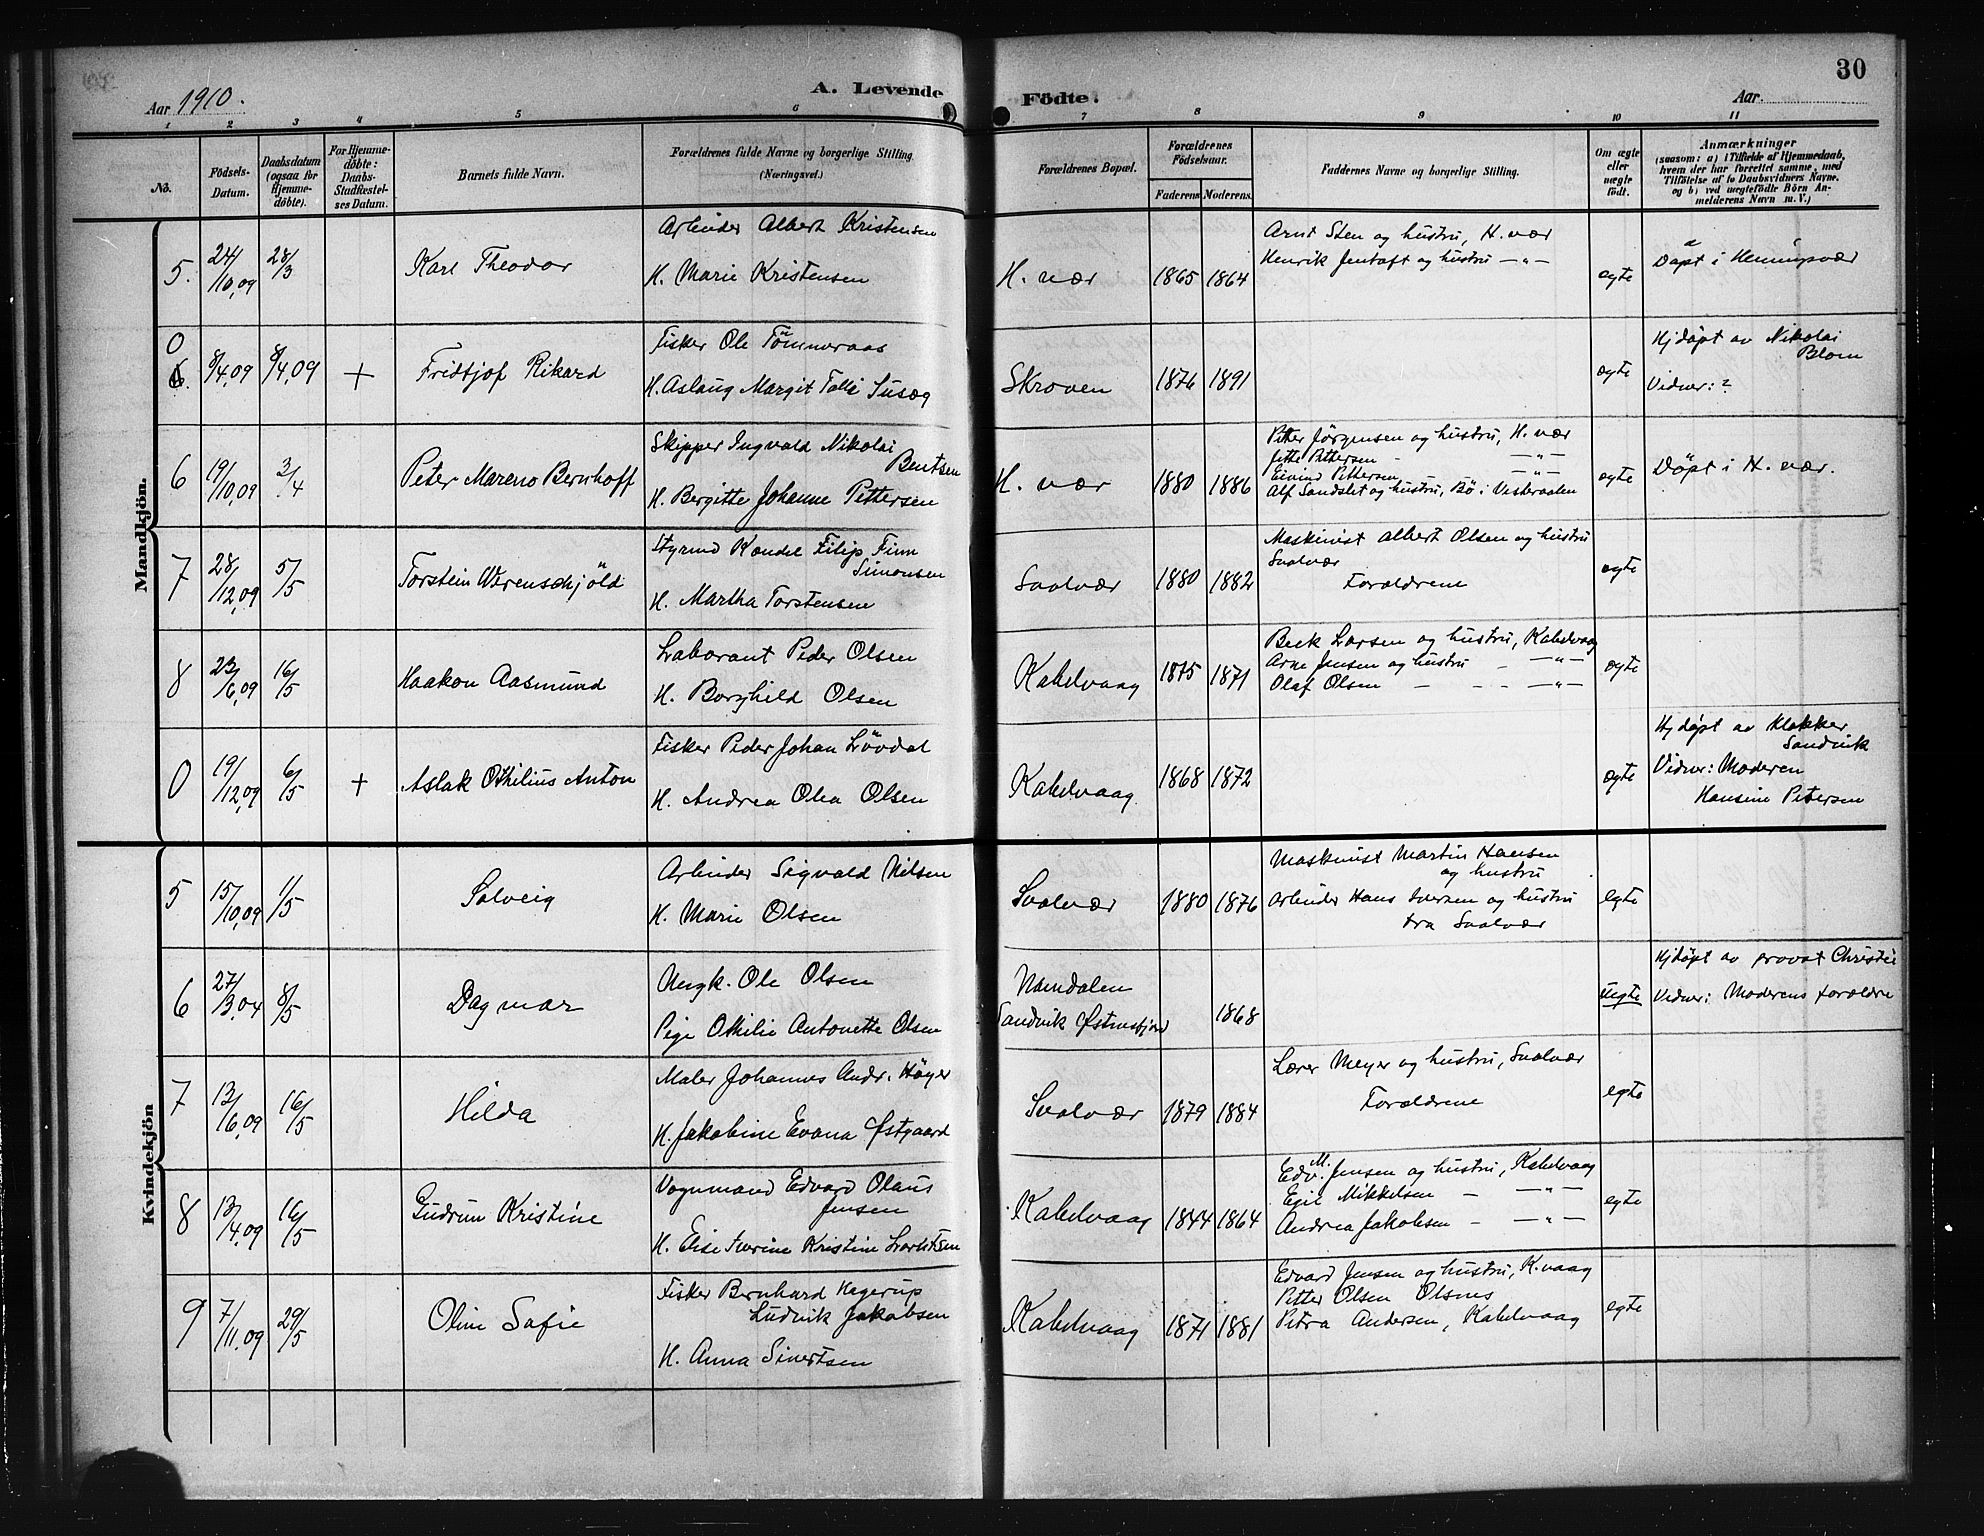 Aar 1910.
A. Levende
Födte.
Aar.
30
1 2 3 4 5 6 7 8 9 10 11
No.
Födsels-
Datum.
Daabsdatum
(ogsaa for
Hjemme-
döbte).
For Hjemme-
döbte:
Daabs-
Stadfæstel-
ses Datum.
Barnets fulde Navn.
Forældrenes fulde Navne og borgerlige Stilling.
(Næringsvei.)
Forældrenes Bopæl.
Forældrenes
Födselsaar.
Faderens. Moderens.
Faddernes Navne og borgerlige Stilling.
Om ægte
eller
uægte
födt.
Anmærkninger
(saasom: a) i Tilfælde af Hjemmedaab,
hvem der har forrettet samme, med
Tilföielse af to Daabsvidners Navne.
og b) ved uægtefödte Börn An-
melderens Navn m. V.)
Mandkjön.
5. 24/10,09 28/3 Karl Theodor
Arbeider Albert Kristensen
H. Marie Kristensen
H. vær 1865 1864
Arnt Sten og hustru, H. vær
Henrik Jentoft og hustru —"—
egte
Döpt i Henningsvær
0
6. 8/4,09 8/4,09 + Fridtjof Rikard
Fisker Ole Tömmeraas
H. Aslaug Margit
Skroven 1876 1891
ægte
Hjdöpt av Nikolai
Blom
Vidner: ?
6 19/10,09 3/4 Peter Mareno Bernhoff
Skipper Ingvald Nikolai
Bentsen
H. Bergitte Johanne Pettersen
H. vær 1880 1886
Petter Jörgensen og hustru, H. vær
Jette Pettersen - —"—
Eivind Pettersen —"—
Alf Sandslet og hustru, Bö i Vesteraalen
egte
Döpt i H. vær.
7 28/12,09 5/5 Torstein Werenschjöld
Styrmd Kondel Filip Finn
Simonsen
H. Martha Torstensen
Svolvær 1880 1882
Maskinist Albert Olsen og hustru
Svolvær
Forældrene
egte
8 23/6,09 16/5 Haakon Aasmund
Laborant Peder Olsen
H. Borghild Olsen
Kabelvaag 1875 1871
Beck Larsen og hustru, Kabelvaag
Arne Jensen og hustru - —"—
Olaf Olsen — - - —"—
egte
0 19/12,09 6/5 + Aslak Othilius Anton
Fisker Peder Johan Lövdal
H. Andrea Olea Olsen
Kabelvaag 1868 1872
ægte
Hjdöpt av Klokker
Sandvik
Vidner: Moderen
Hansine Petersen
Kvindekjön
5 15/10,09 1/5 Solveig
Arbeider Sigvald Nilsen
H. Marie Olsen
Svolvær 1880 1876
Maskinist Martin Hansen
og hustru
Arbeider Hans Iversen og hustru
fra Svolvær
egte
6 27/3,04 8/5 Dagmar
Ungk. Ole Olsen
Pige Othilie Antonette Olsen
Namdalen
Sandvik Østnesfjord 1868
uegte
Hjdöpt av provst Christie
Vidner: Moderens forældre
7 13/6,09 16/5 Hilda
Maler Johannes Andr. Höyer
H. Jakobine Evana Østgaard
Svolvær 1879 1884
Lærer Meyer og hustru, Svolvær
Forældrene
egte
8 13/4,09 16/5 Gudrun Kristine
Vognmand Edvard Olaus
Jensen
H. Elise Kristine
Kabelvaag 1844 1864
Edv. M. Jensen og hustru, Kabelvaag
Egil Mikkelsen — —"—
Andrea Jakobsen - —"—
egte
9 7/11,09 29/5 Oline Sofie
Fisker Bernhard Hagerup
Ludvik Jakobsen
H. Anna Sivertsen
Kabelvaag 1871 1881
Edvard Jensen og hustru, K.vaag
Petter Olsen Olsnes
Petra Andersen, Kabelvaag
egte